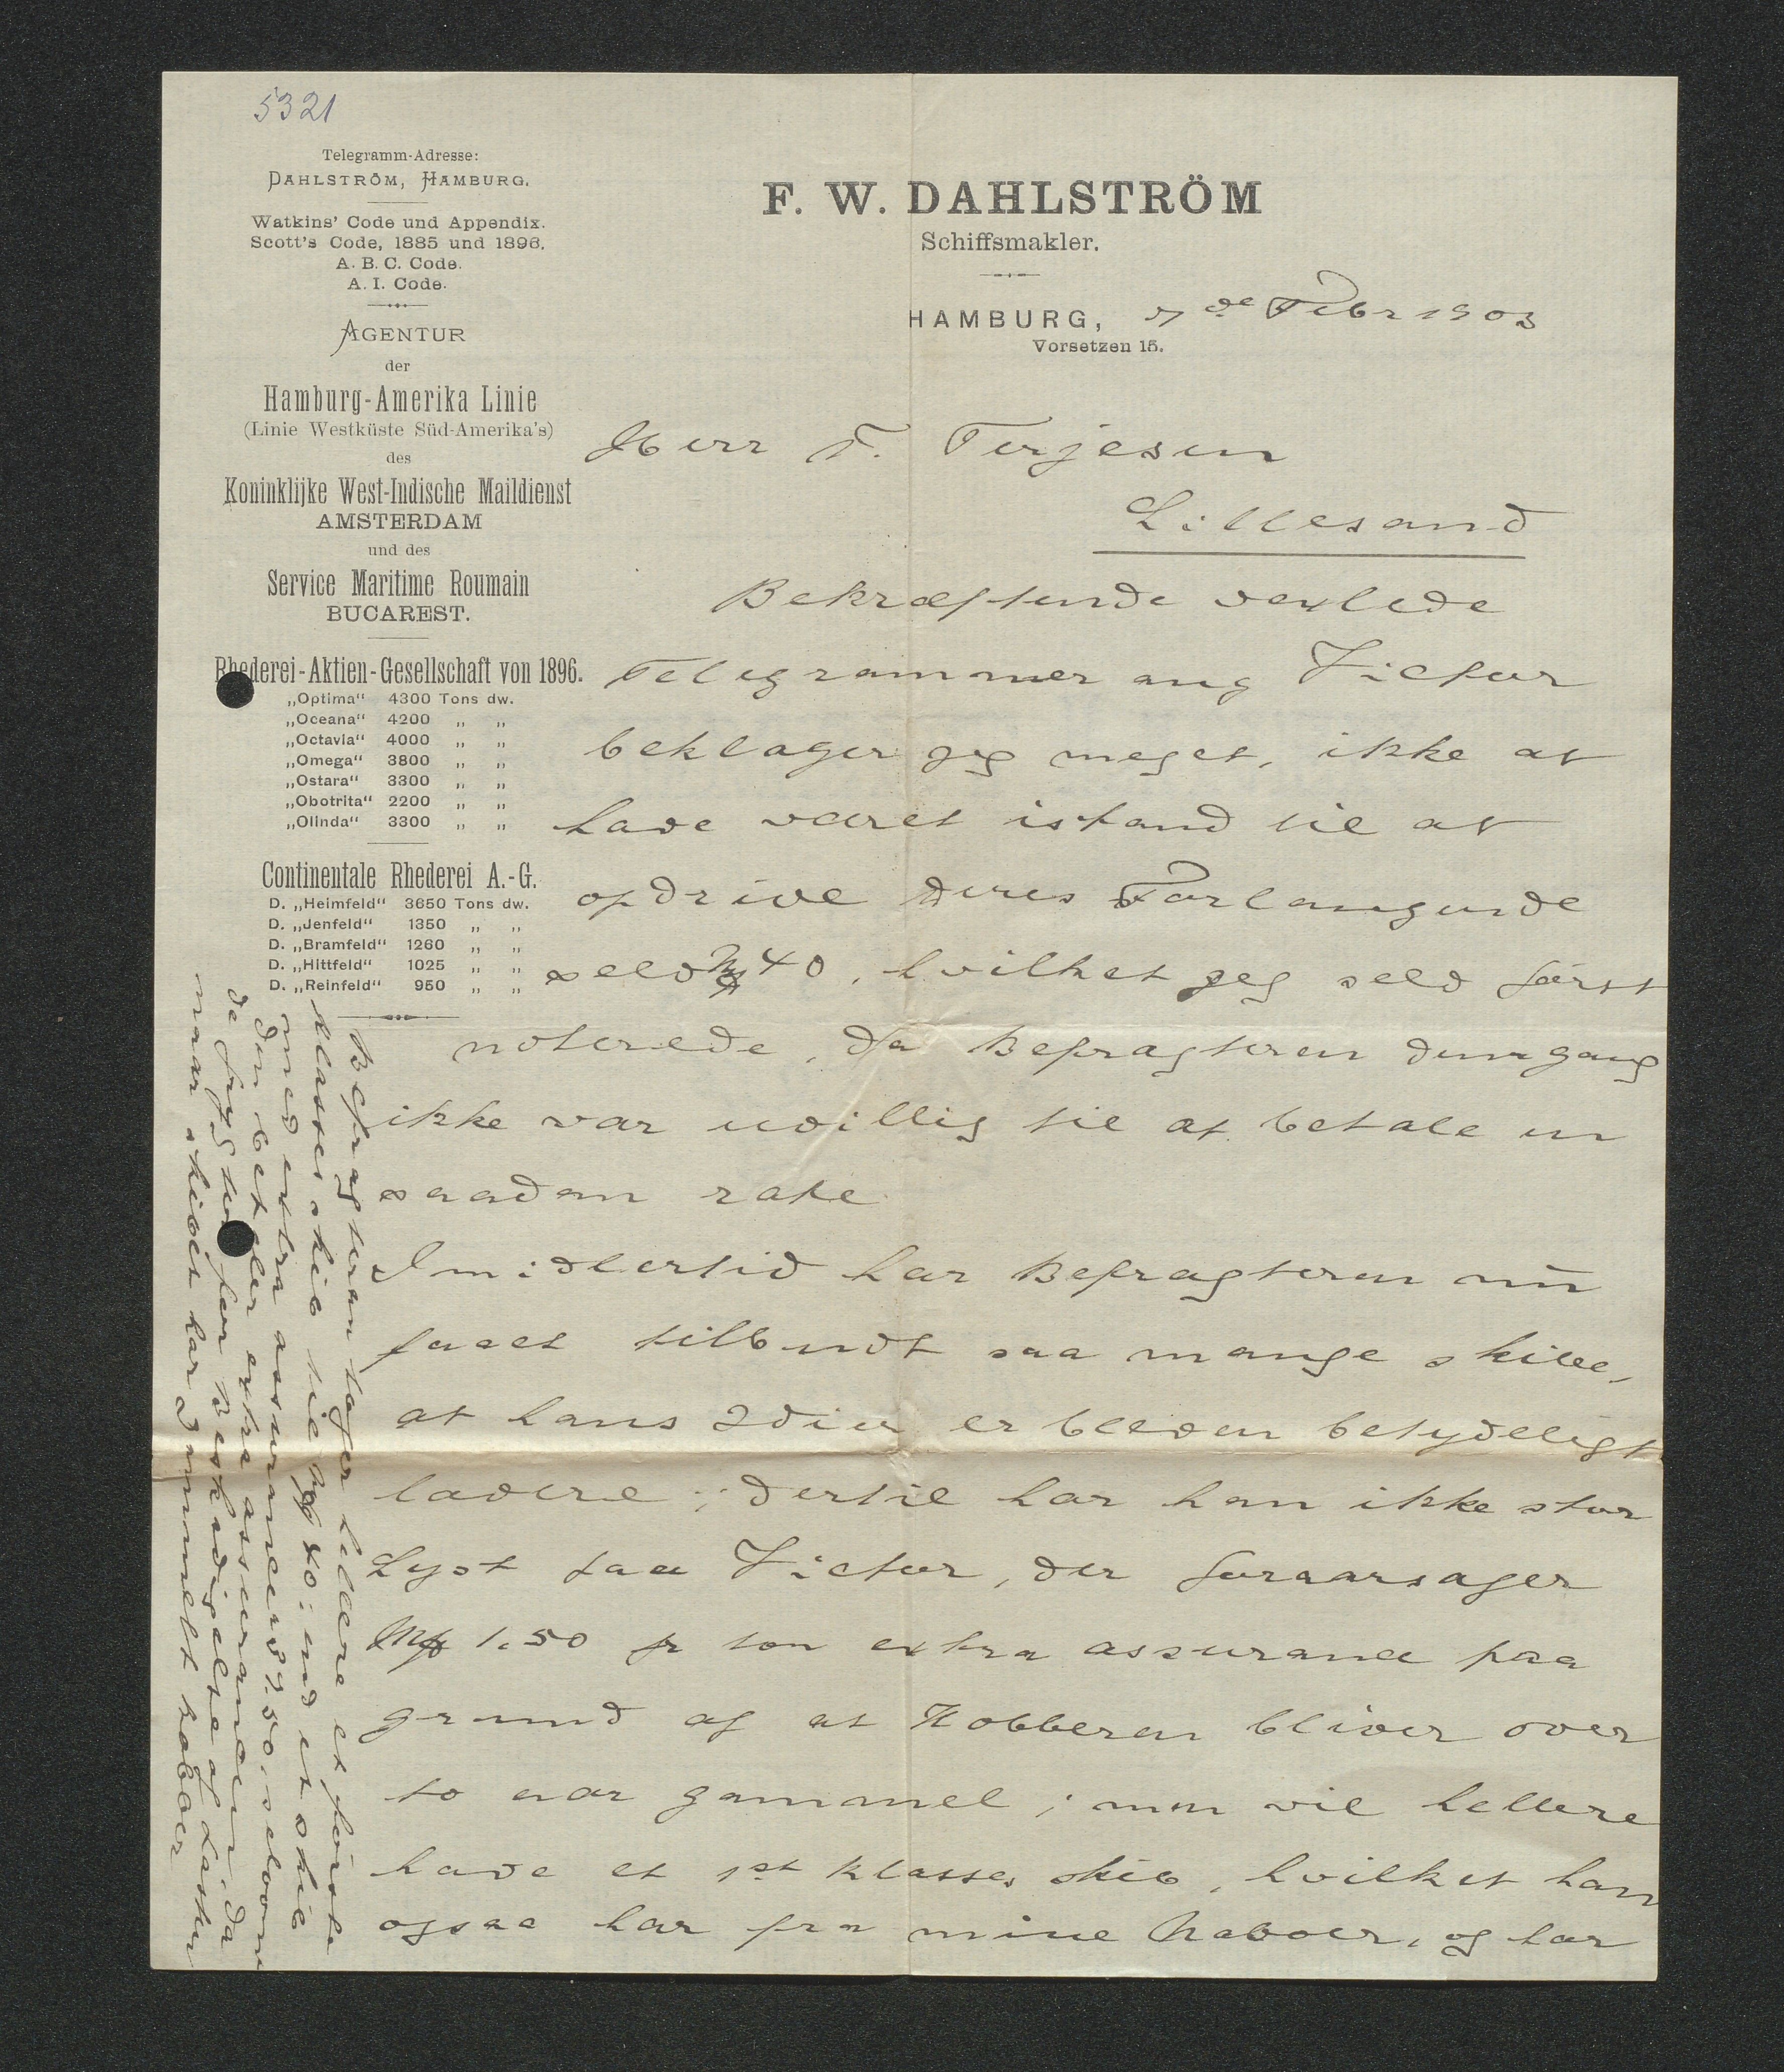 5321
Telegramm-Adresse:
DAHLSTRÖM, HAMBURG.
Watkins' Code und Appendix.
Scott's Code, 1885 und 1896.
A. B. C. Code.
A. I. Code.
AGENTUR
der
Hamburg-Amerika Linie
(Linie Westküste Süd-Amerika's)
des
Koninklijke West-Indische Maildienst
AMSTERDAM
und des
Service Maritime Roumain
BUCAREST.
Rhederei-Aktien-Gesellschaft von 1896.
„Optima“ 4300 Tons dw.
„Oceana“ 4200 „ „
„Octavia“ 4000 „ „
„Omega“ 3800 „ „
„Ostara“ 3300 „ „
„Obotrita“ 2200 „ „
„Olinda“ 3300 „ „
Continentale Rhederei A.-G.
D. „Heimfeld“ 3650 Tons dw.
D. „Jenfeld“ 1350 „ „
D. „Bramfeld“ 1260 „ „
D. „Hittfeld“ 1025 „ „
D. „Reinfeld“ 950 „ „
F. W. DAHLSTRÖM
Schiffsmakler.
HAMBURG, 7de Febr 1903
Vorsetzen 15.
Herr T. Terjesen
Lillesand
Bekræftende vexlede
Telegrammer ang Victor
beklager jeg meget, ikke at
have været istand til at
opdrive deres Forlangende
selv 40, hvilket jeg selv först
noterede, da Befragteren dengang
ikke var uvillig til at betale en
saadan rate
Imidlertid har Befragteren nu
faaet tilbudt saa mange skibe,
at hans Idéer er bleven betydeligt
lavere; dertil har han ikke stor
Lyst paa Victor, der foraarsager
1.50 pr ton extra assurance paa
grund af at Kobberen bliver over
to aar gammel; man vil hellere
have et 1st klasses skib, hvilket han
ogsaa har fra mine Naboer, og har
Befragteren tager hellere et förste
klasses skib til 40: end et skib
med extra assurance 37.50, selvom
den betaler extra assurancen, da
de frygter for Beskadigelse af Lasten
naar skibet har gammelt kobber